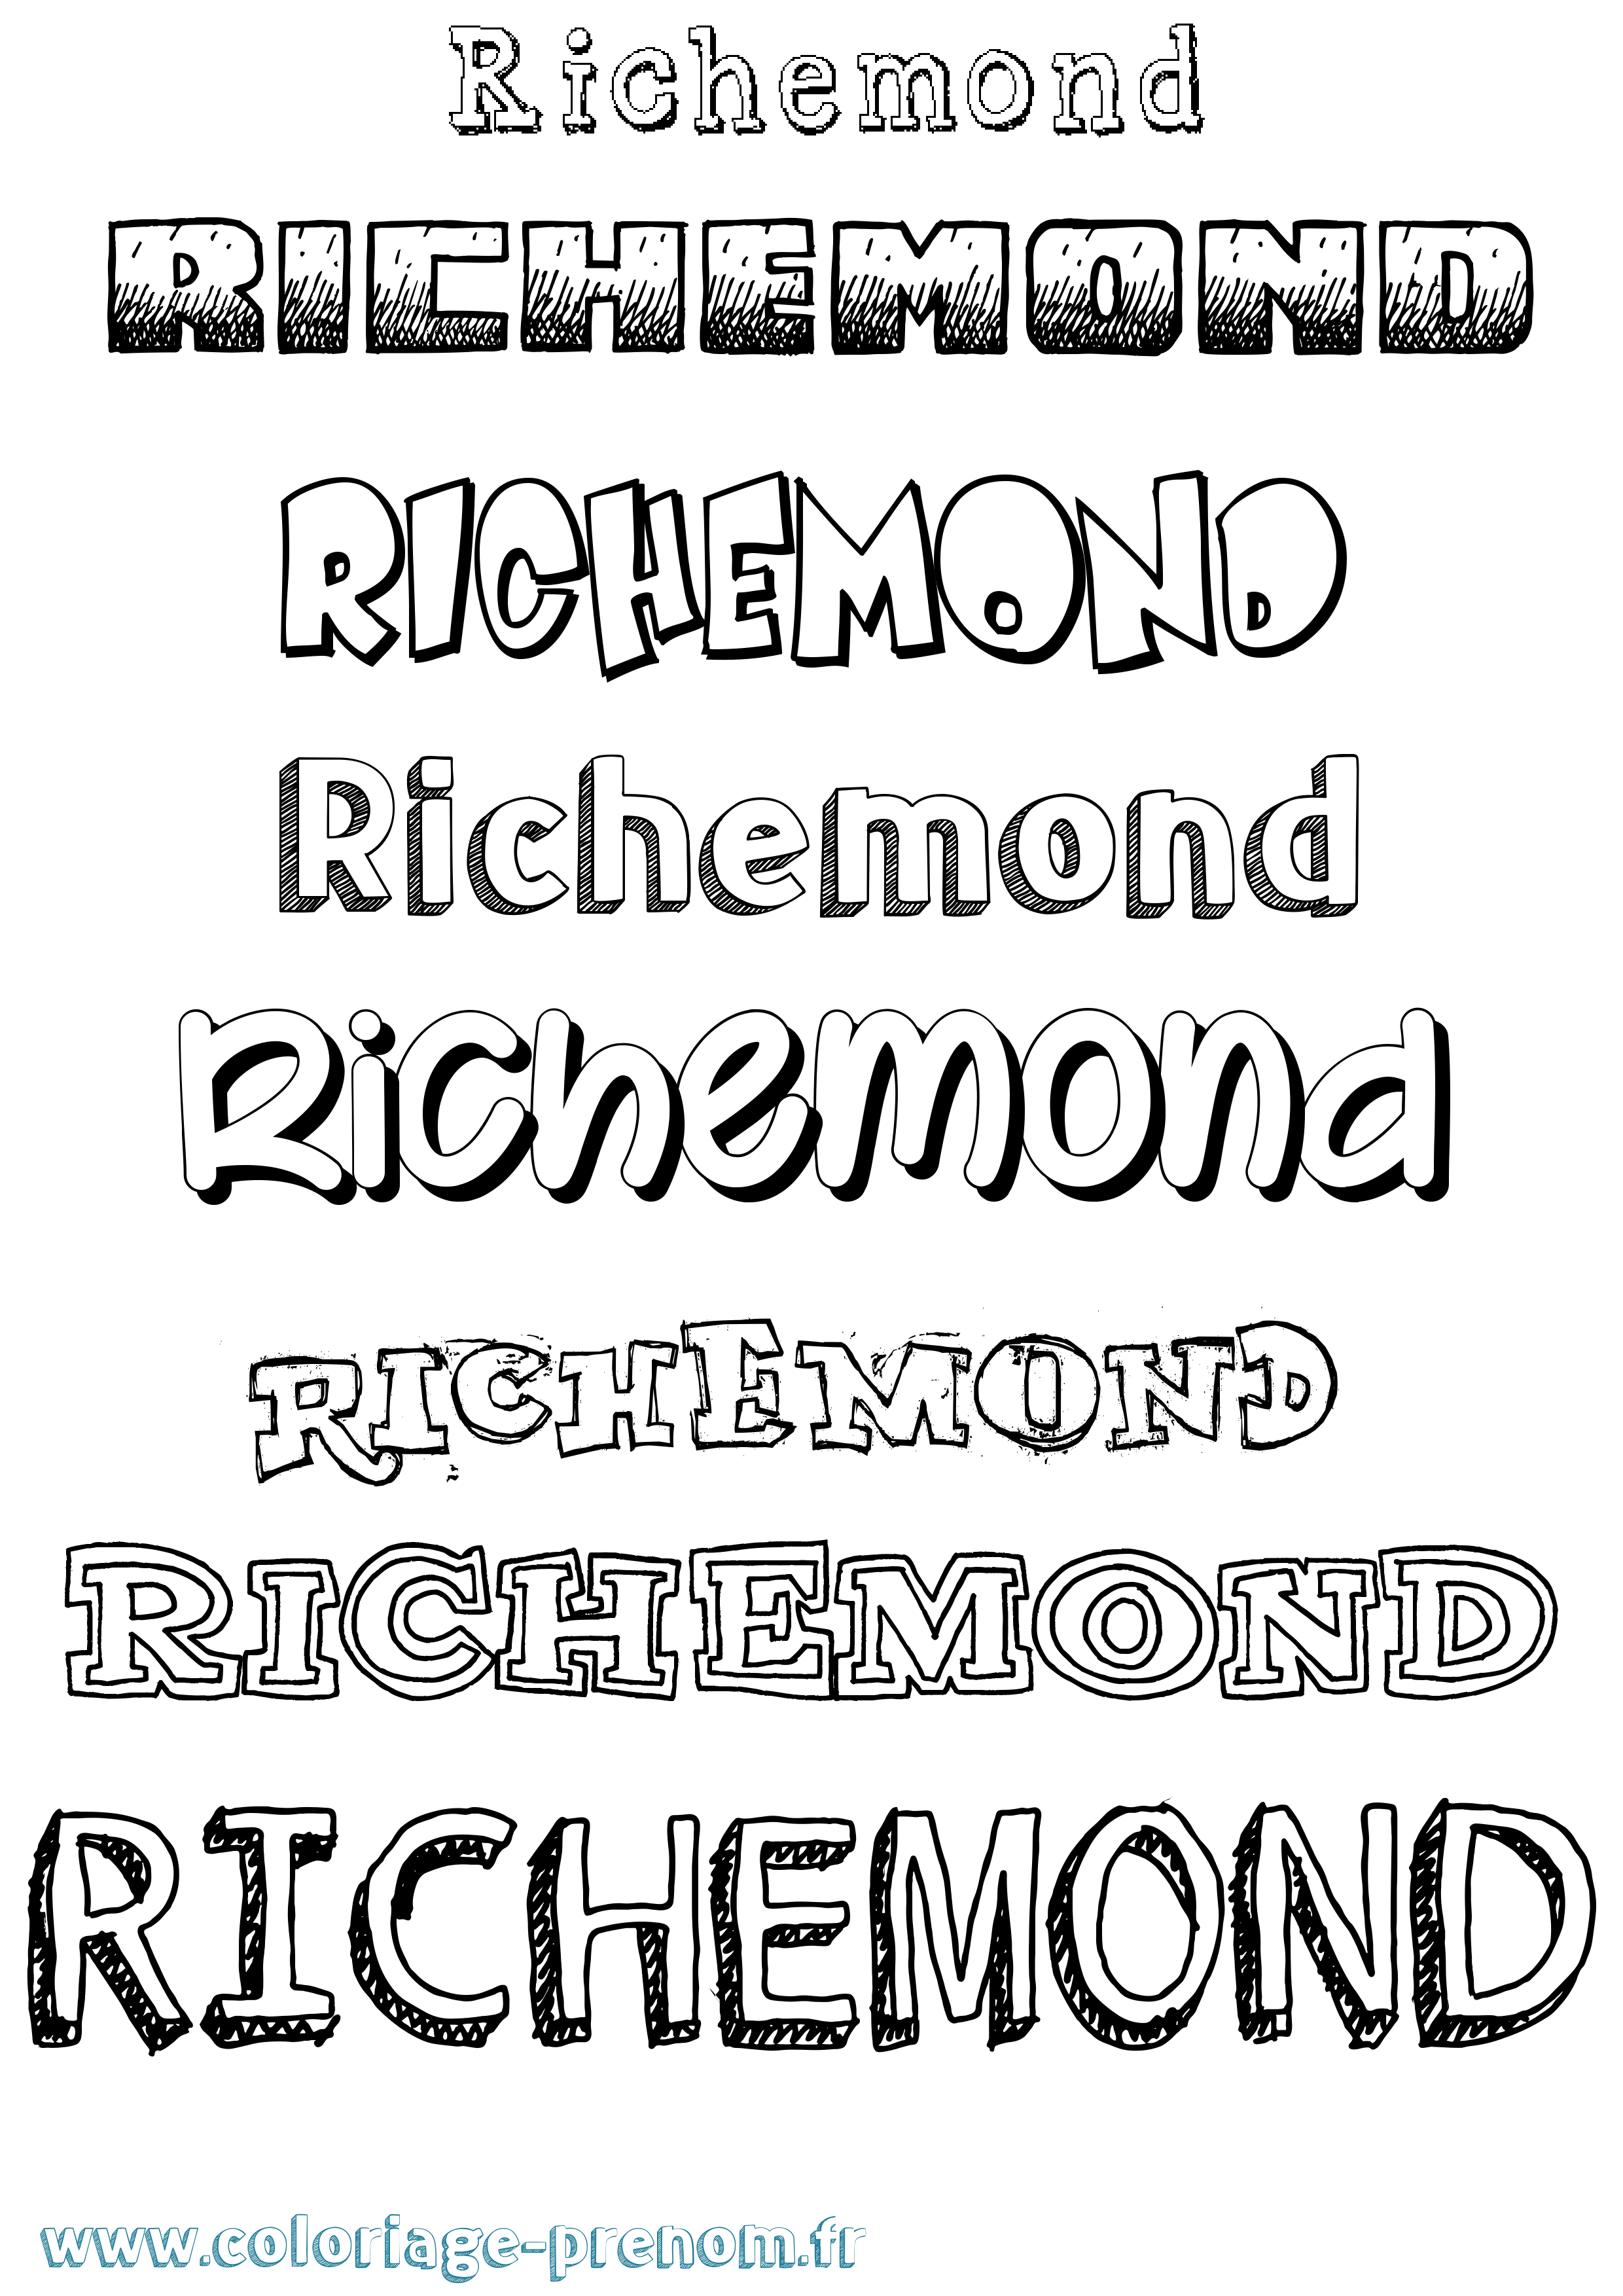 Richemond
RICHEMOND
RICHEMOND
Richemond
Richemond
RICHEMOND
RICHEMOND
RICHEMOND
www.coloriage-prenom.fr